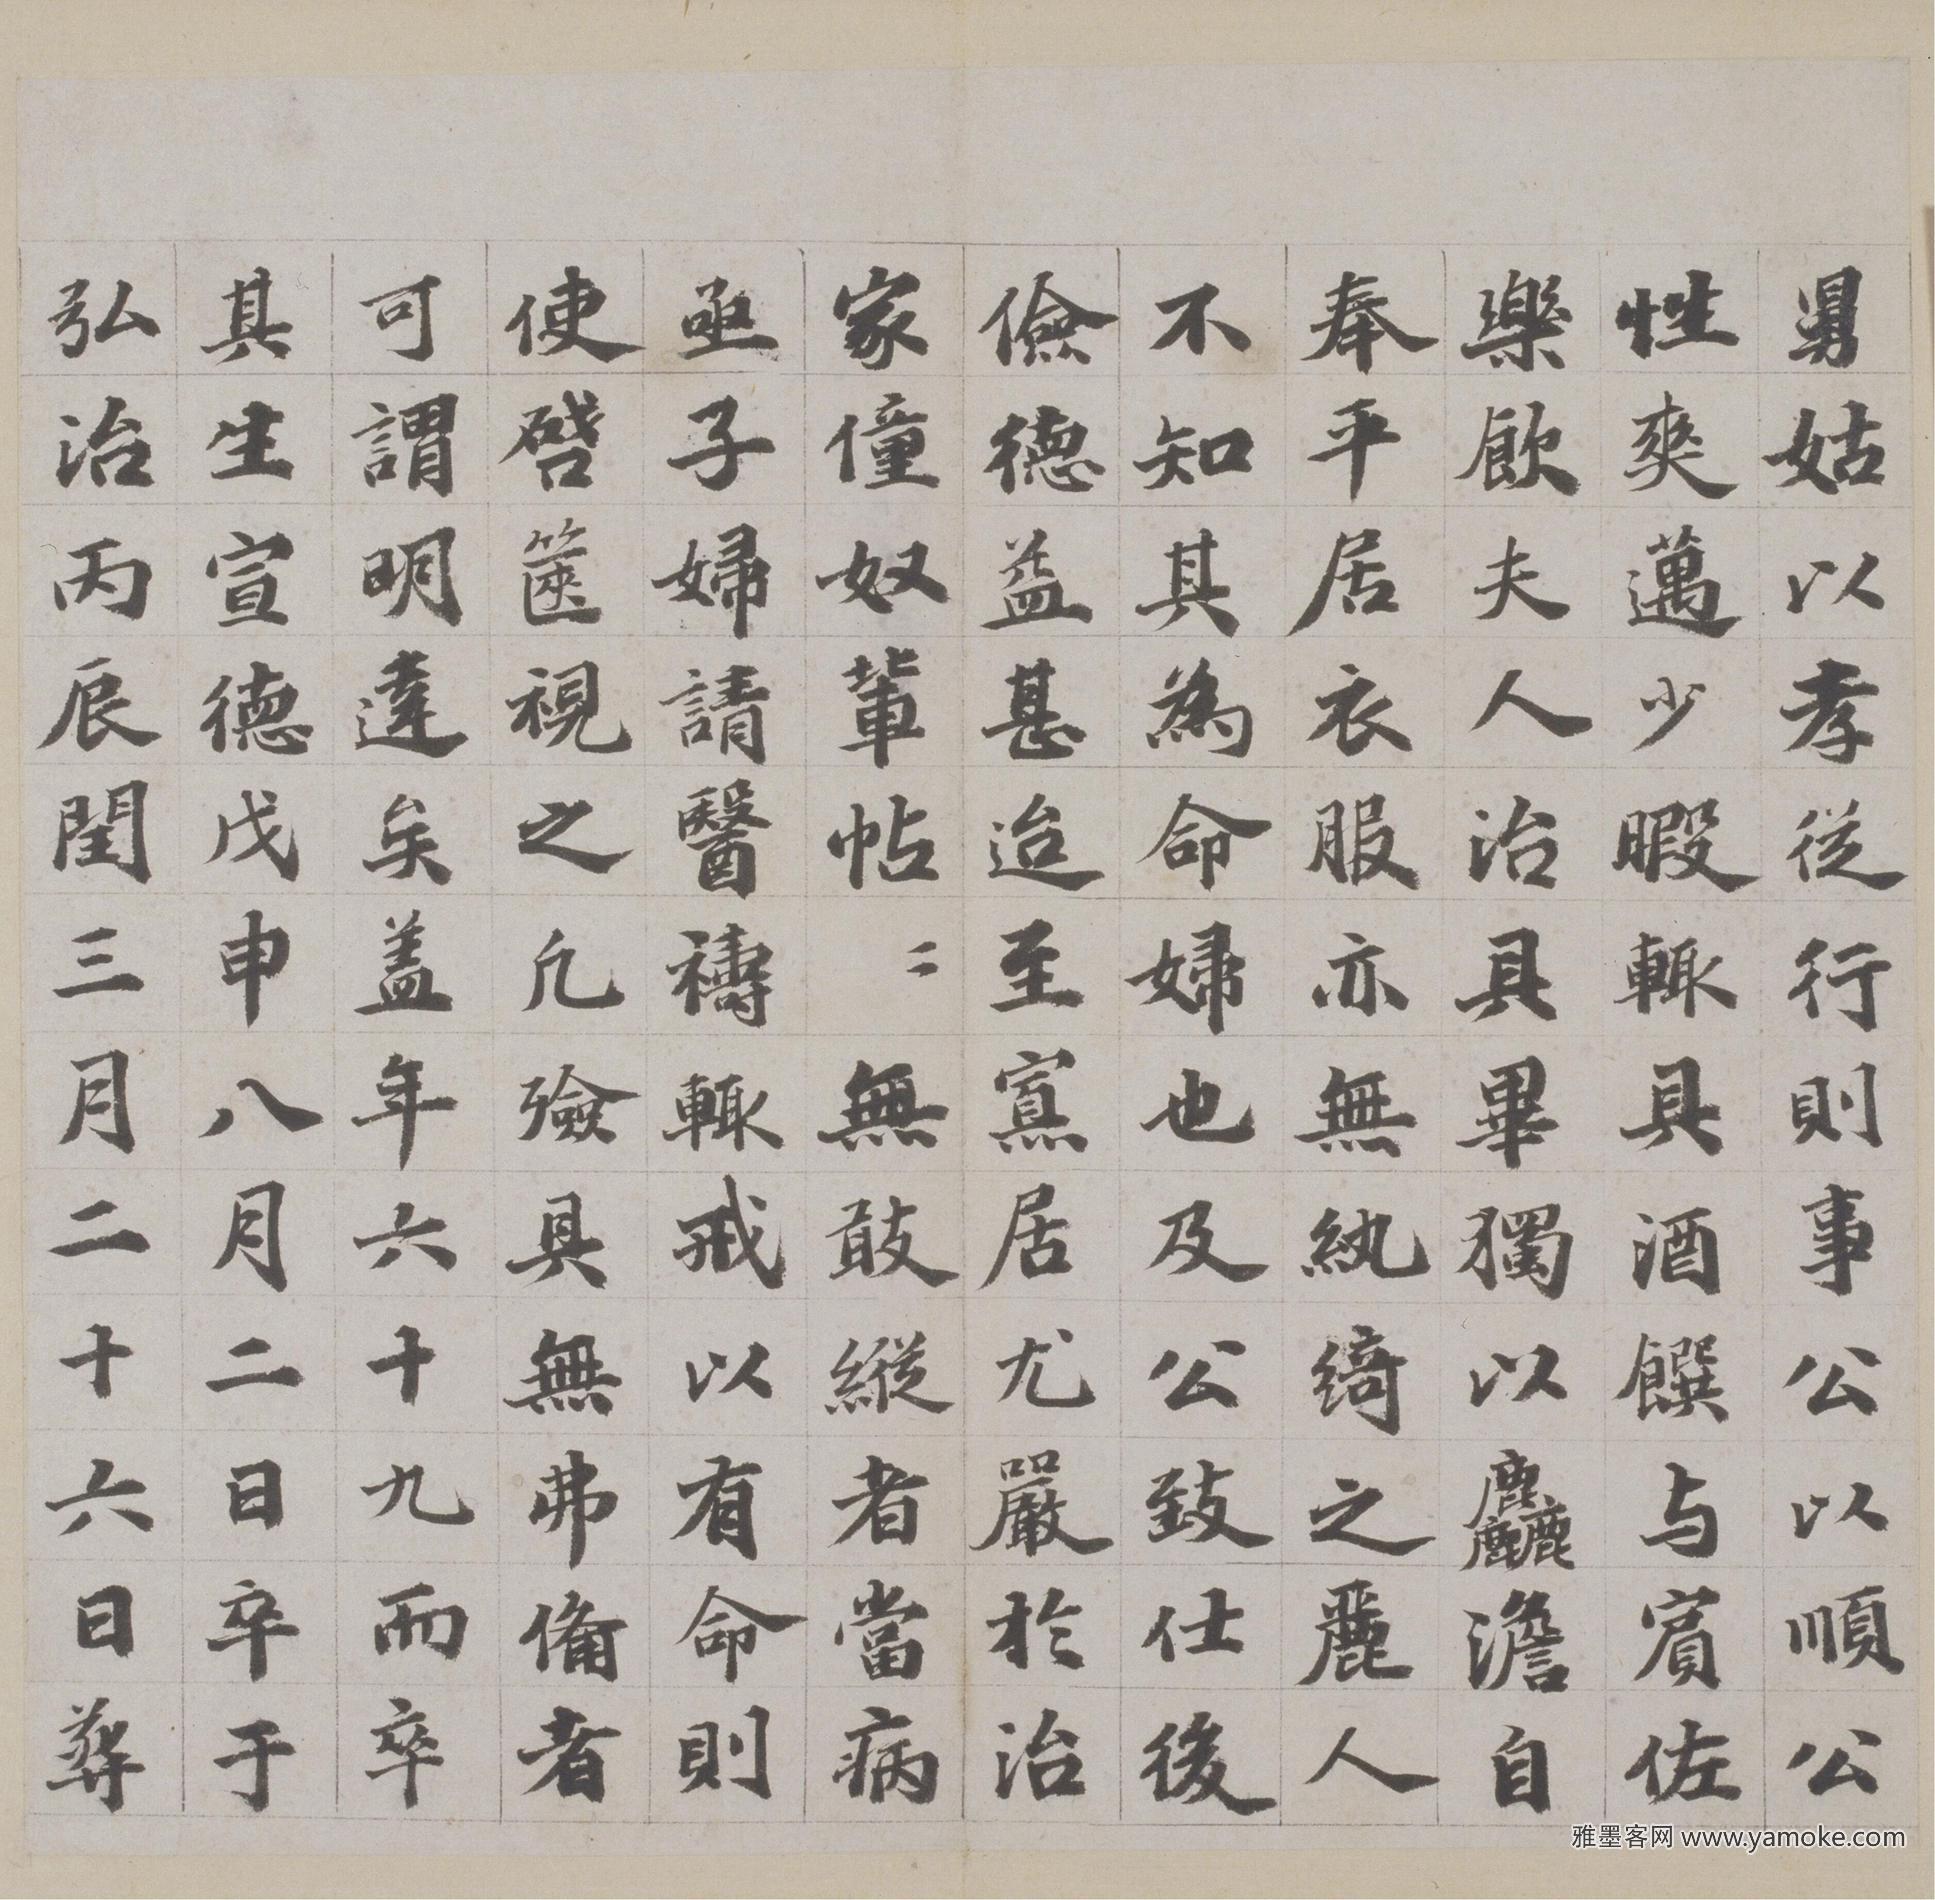 舅姑以孝從行則事公以順公
性爽邁少暇輙具酒饌与賓佐
樂飲夫人治具畢獨以麤澹自
奉平居衣服亦無紈綺之麗人
不知其為命婦也及公致仕後
儉德益甚迨至寡居尤嚴於治
家僮奴輩帖〻無敢縱者當病
亟子婦請醫禱輙戒以有命則
使啓篋視之凡殮具無弗備者
可謂明達矣盖年六十九而卒
其生宣德戊申八月二日卒于
弘治丙辰閏三月二十六日葬
雅墨客网 www.yamoke.com